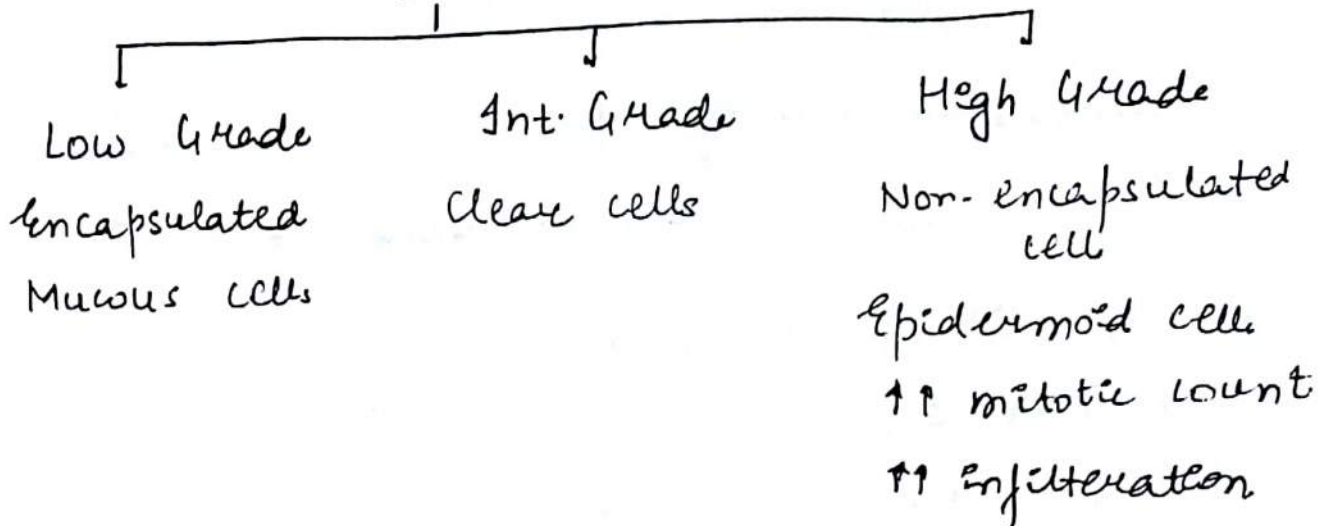 Low Grade
Encapsulated
Mucous cells
Int. Grade
Clear cells
High Grade
Non-encapsulated
cell
Epidermoid cell
↑↑ mitotic count
↑↑ infilteration